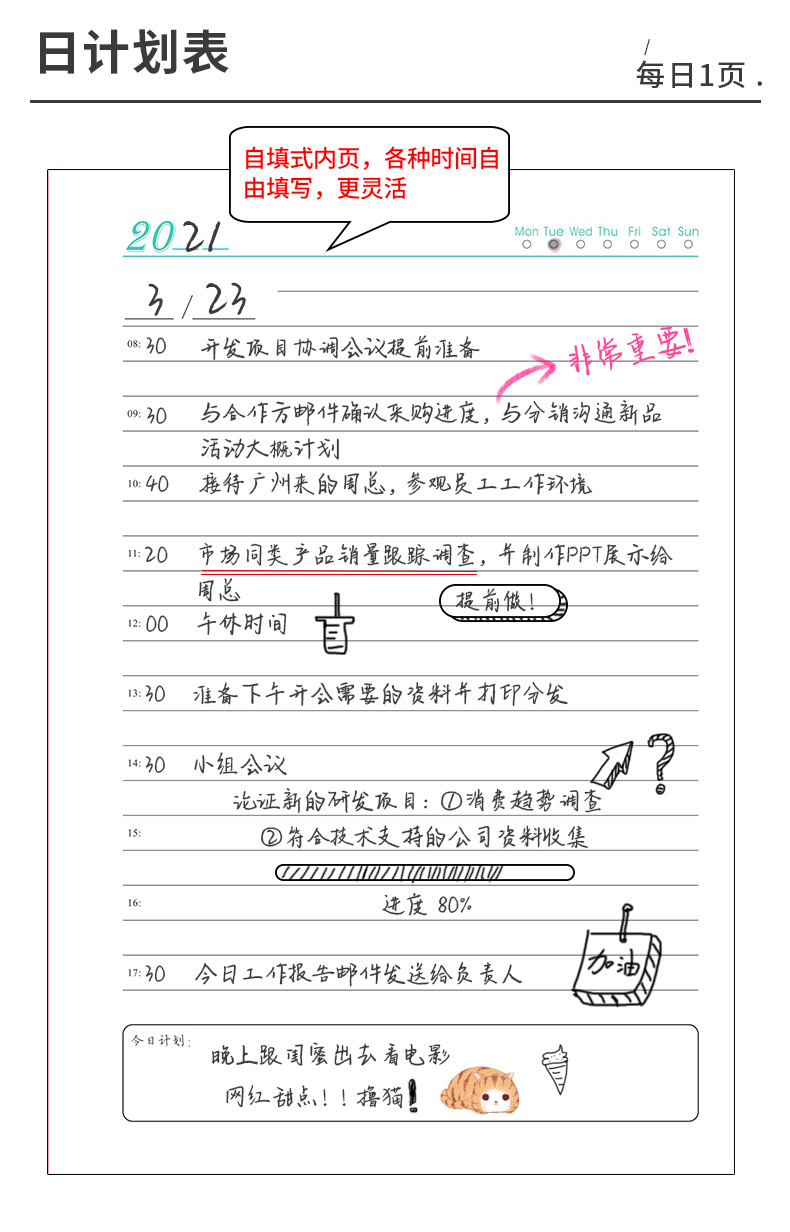 日计划表
/
每日1页 .
自填式内页，各种时间自
由填写，更灵活
2021
Mon Tue Wed Thu Fri Sat Sun
3 / 23
08: 30 开发项目协调会议提前准备
非常重要!
09: 30 与合作方邮件确认采购进度，与分销沟通新品
活动大概计划
10: 40 接待广州来的周总，参观员工工作环境
11: 20 市场同类产品销量跟踪调查，并制作PPT展示给
周总
提前做!
12: 00 午休时间
13: 30 准备下午开会需要的资料并打印分发
14: 30 小组会议
?
论证新的研发项目：①消费趋势调查
15: ②符合技术支持的公司资料收集
16: 进度 80%
加油
17: 30 今日工作报告邮件发送给负责人
今日计划：
晚上跟闺蜜出去看电影
网红甜点！！撸猫!